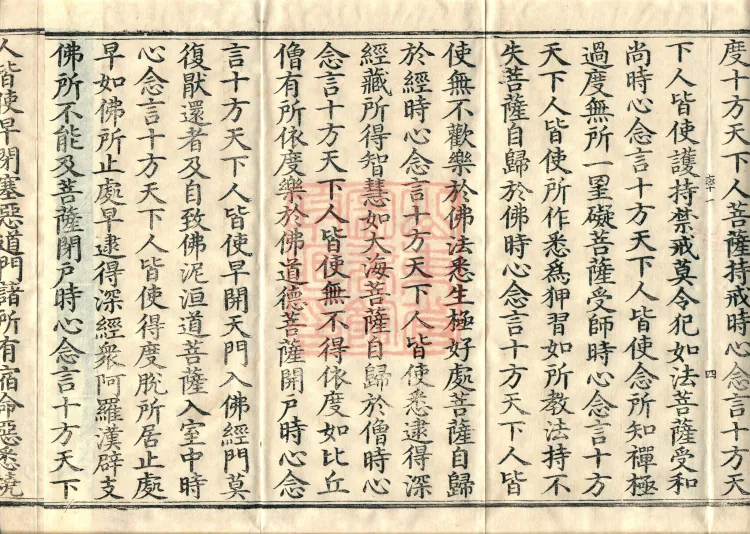 度十方天下人菩薩持戒時心念言十方天
下人皆使護持禁戒莫令犯如法菩薩受和
尚時心念言十方天下人皆使念所知禪極
過度無所一罣礙菩薩受師時心念言十方
天下人皆使所作悉為狎習如所教法持不
失菩薩自歸於佛時心念言十方天下人皆
使無不歡樂於佛法悉生極好處菩薩自歸
於經時心念言十方天下人皆使悉逮得深
經藏所得智慧如大海菩薩自歸於僧時心
念言十方天下人皆使無不得依度如比丘
僧有所依度樂於佛道德菩薩開戶時心念
言十方天下人皆使早開天門入佛經門莫
復厭還者及自致佛泥洹道菩薩入室中時
心念言十方天下人皆使得度脫所居止處
早如佛所止處早逮得深經衆阿羅漢辟支
佛所不能及菩薩閉戶時心念言十方天下
人皆使早閉塞惡道門諸所有宿命惡悉燒
四